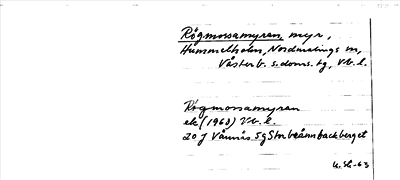 Rögmossamyren, myr,
Hummelholm, Nordmalings sn,
Västerb. s. doms. tg, Vb. l.
Rögmossamyren
ek (1963) Vb. l.
20 J Vännäs 5g Storbrännbackberget